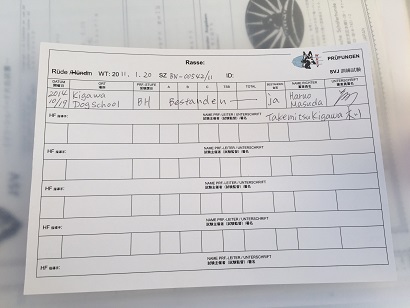 Rasse:
PRÜFUNGEN
Rüde /Hündin WT: 2011.1.20 SZ BK-00542/11 ID:
SVJ 訓練試験
DATUM ORT PRF.-STUFE A B C TSB NAME RICHTER UNTERSCHRIFT
開催日 審査員名 審査員署名
2014 10/19 Kigawa Dogschool BH Bestanden ja Haruo Masuda
HF 指導手: NAME PRF.-LEITER / UNTERSCHRIFT
試験主催者(試験監督)/署名
Takemitsu Kigawa
HF 指導手: NAME PRF.-LEITER / UNTERSCHRIFT
試験主催者(試験監督)/署名
HF 指導手: NAME PRF.-LEITER / UNTERSCHRIFT
試験主催者(試験監督)/署名
HF 指導手: NAME PRF.-LEITER / UNTERSCHRIFT
試験主催者(試験監督)/署名
HF 指導手: NAME PRF.-LEITER / UNTERSCHRIFT
試験主催者(試験監督)/署名